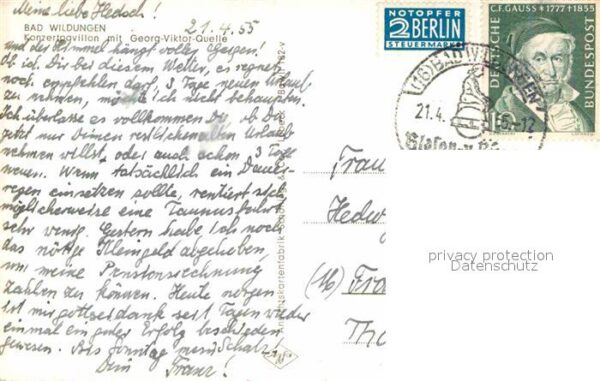 Meine liebe Hedoch!
21.4.55
BAD WILDUNGEN
Konzertpavillon mit Georg-Viktor-Quelle
und der Himmel hängt voller Geigen!
Ob ich Dir bei diesem Wetter, es regnet
noch empfehlen darf 3 Tage neuen Urlaub
zu nehmen, möchte ich nicht behaupten.
Ich überlasse es vollkommen Dir, ob Du
jetzt nur Deinen restlichen alten Urlaub
nehmen willst, oder auch schon 3 Tage
neuen. Wenn tatsächlich ein Dauer-
regen einsetzen sollte, rentiert sich
möglicherweise eine Taunusfahrt
sehr wenig. Gestern habe ich noch
das nötige Kleingeld abgehoben,
um meine Pensionsrechnung
zahlen zu können. Heute morgen
ist mir gottseidank seit Tagen wieder
einmal ein guter Erfolg beschieden
gewesen. Bis Sonntag mein Schatz!
Dein Franz!
NOTOPFER
2 BERLIN
STEUERMARKE
C.F. GAUSS * 1777 + 1855
DEUTSCHE
BUNDESPOST
(16) BAD WILDUNGEN
21.4.
-12
Frau
Hedw
(16) Fra
Tho
privacy protection
Datenschutz